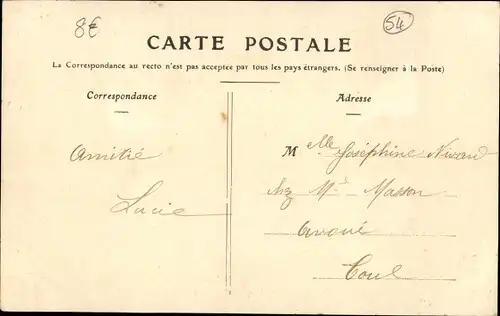 8€
54
CARTE POSTALE
La Correspondance au recto n'est pas acceptée par tous les pays étrangers. (Se renseigner à la Poste)
Correspondance
Adresse
Amitié
Lucie
Melle Joséphine Nivard
chez Mr Masson
Avoué
Toul